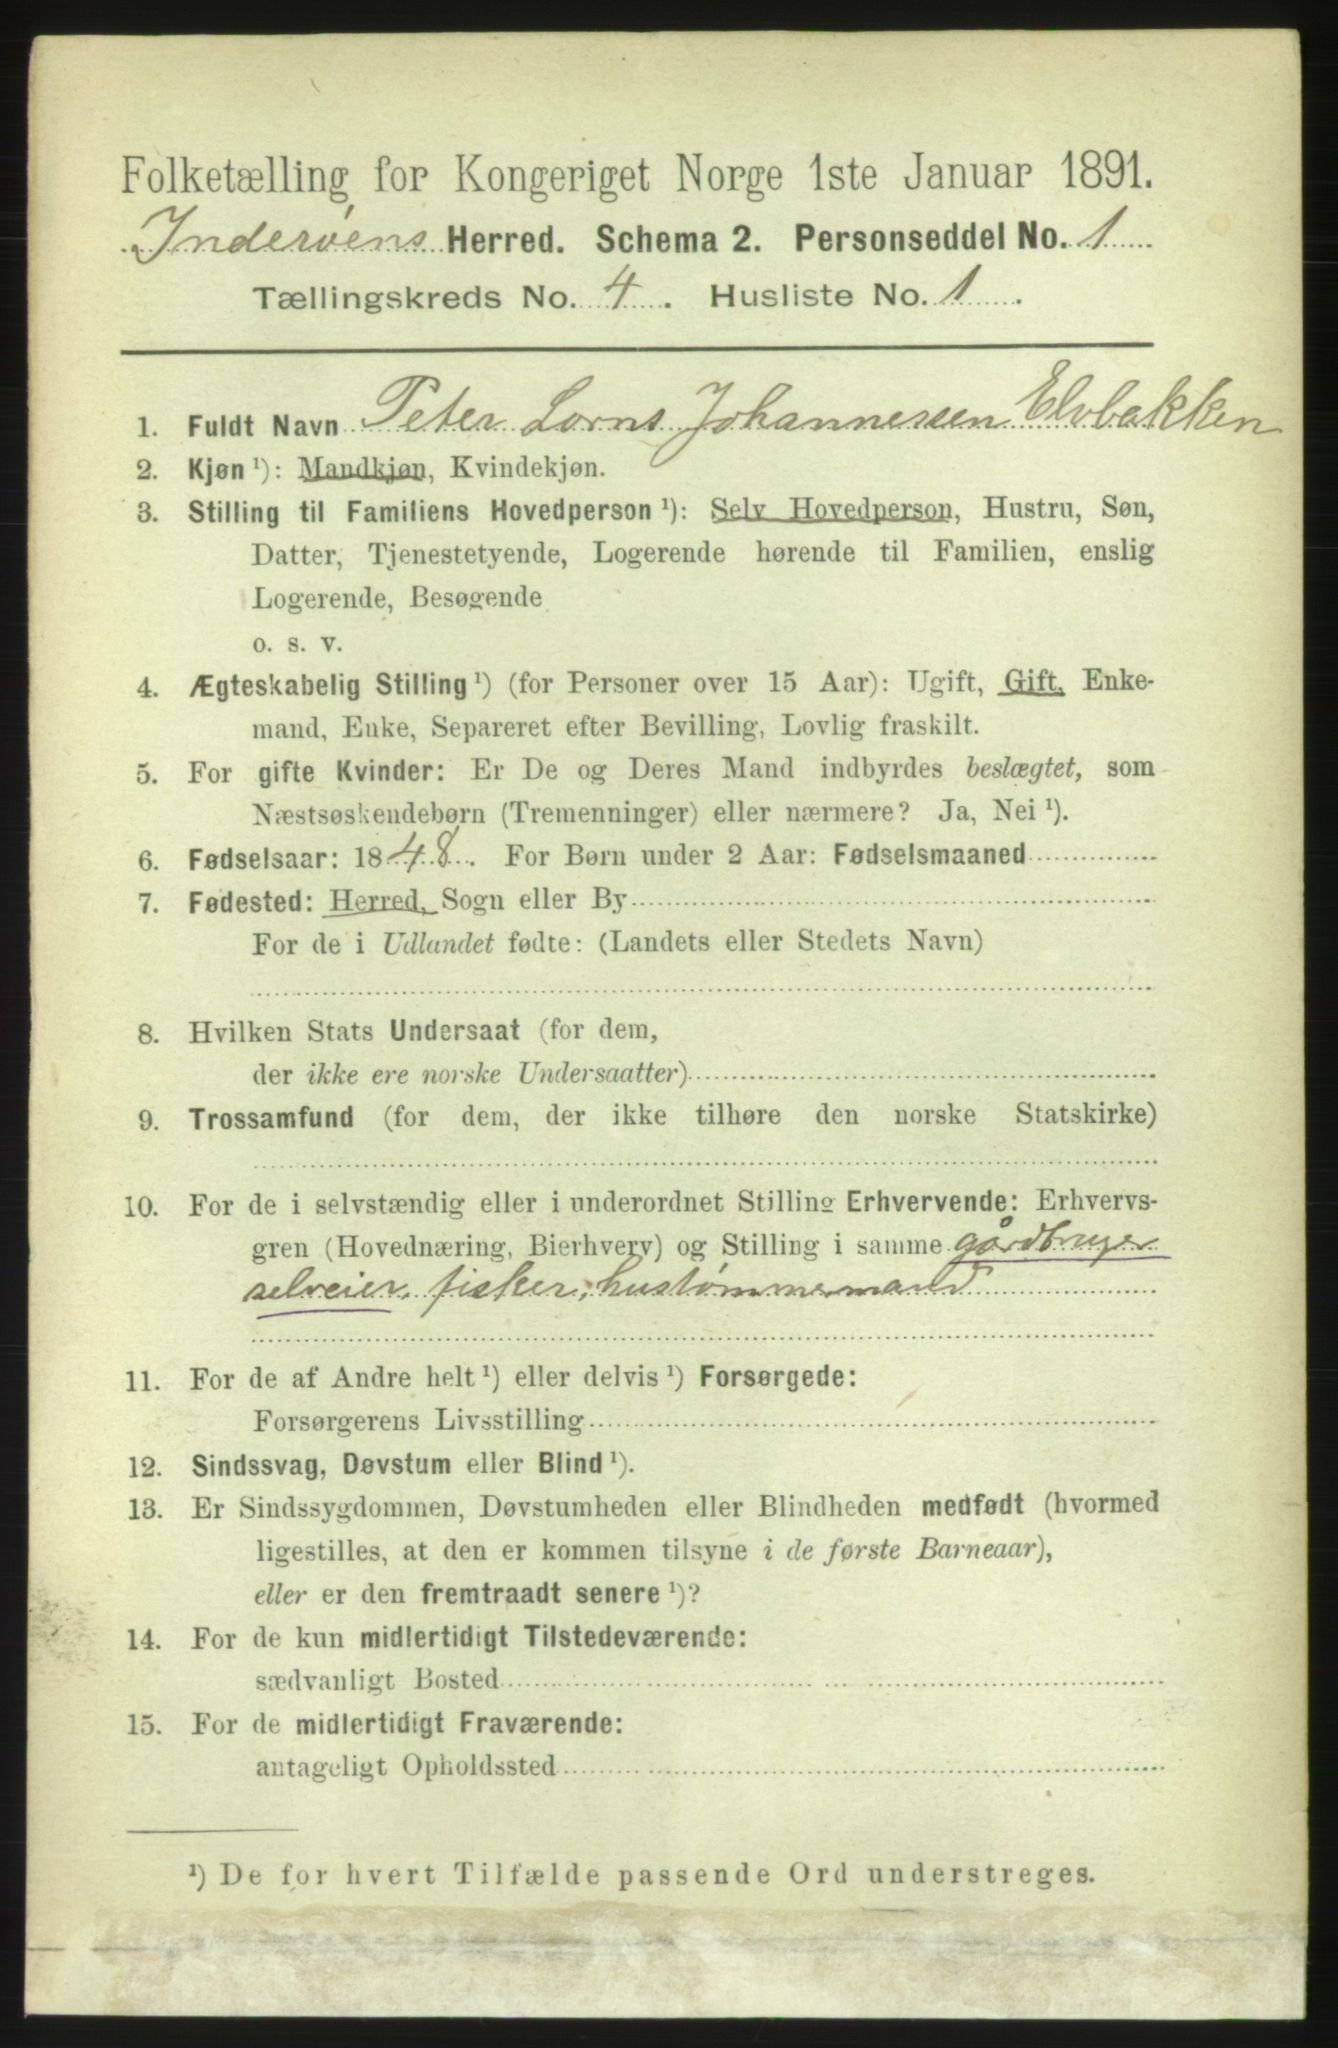 Folketælling for Kongeriget Norge 1ste Januar 1891.
Inderøens Herred. Schema 2. Personseddel No. 1
Tællingskreds No. 4. Husliste No. 1.
1. Fuldt Navn Peter Lorns Johannessen Elvbakken
2. Kjøn ¹): Mandkjøn, Kvindekjøn.
3. Stilling til Familiens Hovedperson ¹): Selv Hovedperson, Hustru, Søn,
Datter, Tjenestetyende, Logerende hørende til Familien, enslig
Logerende, Besøgende
o. s. v.
4. Ægteskabelig Stilling ¹) (for Personer over 15 Aar): Ugift, Gift, Enke-
mand, Enke, Separeret efter Bevilling, Lovlig fraskilt.
5. For gifte Kvinder: Er De og Deres Mand indbyrdes beslægtet, som
Næstsøskendebørn (Tremenninger) eller nærmere? Ja, Nei ¹).
6. Fødselsaar: 1848. For Børn under 2 Aar: Fødselsmaaned
7. Fødested: Herred, Sogn eller By
For de i Udlandet fødte: (Landets eller Stedets Navn)
8. Hvilken Stats Undersaat (for dem,
der ikke ere norske Undersaatter)
9. Trossamfund (for dem, der ikke tilhøre den norske Statskirke)
10. For de i selvstændig eller i underordnet Stilling Erhvervende: Erhvervs-
gren (Hovednæring, Bierhverv) og Stilling i samme gårdbruger
selveier, fisker, hustømmermand
11. For de af Andre helt ¹) eller delvis ¹) Forsørgede:
Forsørgerens Livsstilling
12. Sindssvag, Døvstum eller Blind ¹).
13. Er Sindssygdommen, Døvstumheden eller Blindheden medfødt (hvormed
ligestilles, at den er kommen tilsyne i de første Barneaar),
eller er den fremtraadt senere ¹)?
14. For de kun midlertidigt Tilstedeværende:
sædvanligt Bosted
15. For de midlertidigt Fraværende:
antageligt Opholdssted
¹) De for hvert Tilfælde passende Ord understreges.